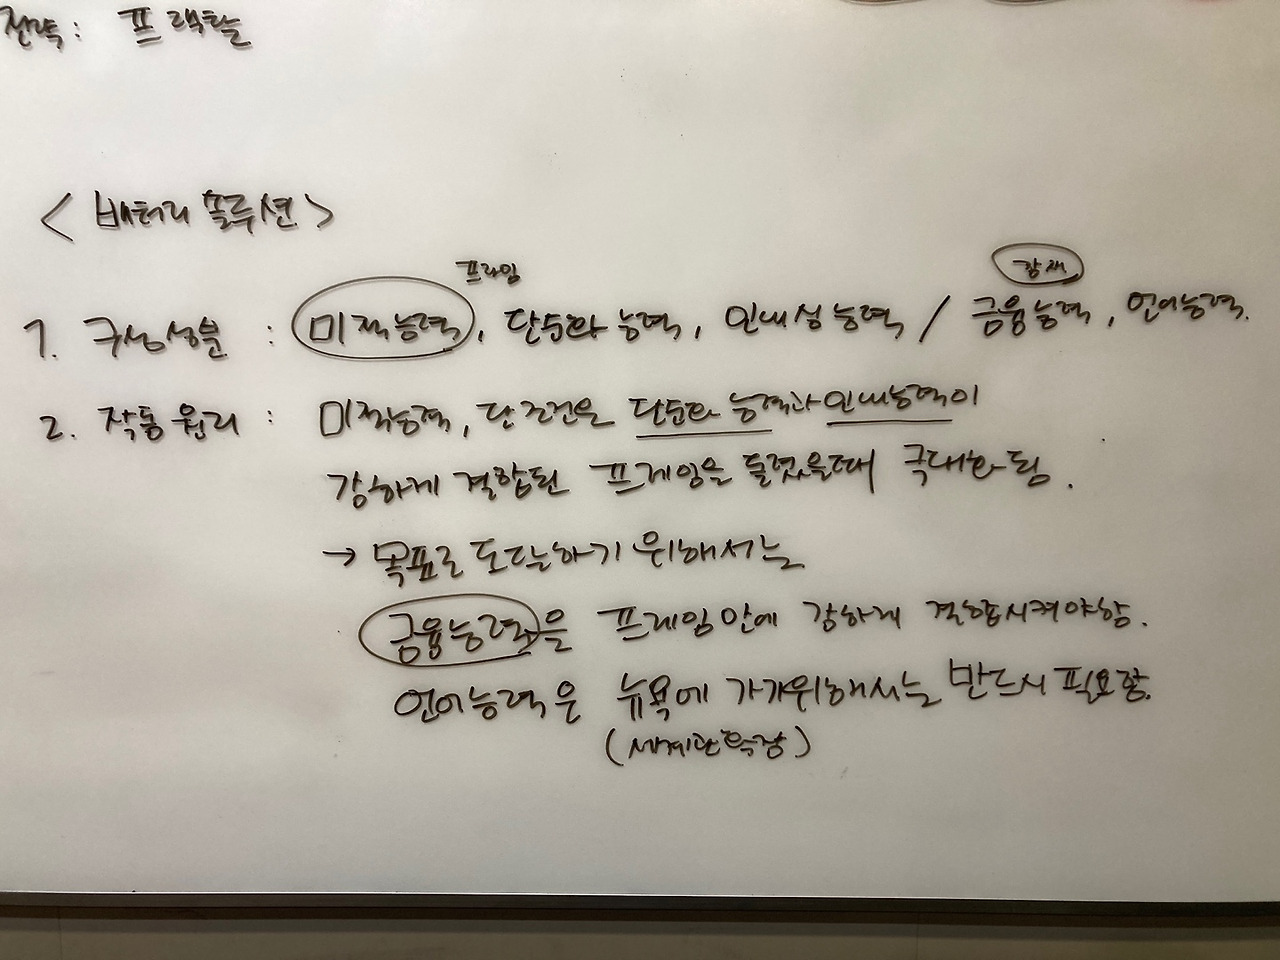 전략: 프랙탈
<배터리 솔루션>
프레임
잠재
1. 구성성분 : 미적능력, 단순화 능력, 인내성 능력 / 금융능력, 언어능력.
2. 작동원리 : 미적능력, 단 조건은 단순화 능력과 인내능력이
강하게 결합된 프레임을 들렸을때 극대화됨.
→ 목표로 도달하기 위해서는
금융능력을 프레임안에 강하게 결합시켜야함.
언어능력은 뉴욕에 가기위해서는 반드시 필요함.
(세계관확장)